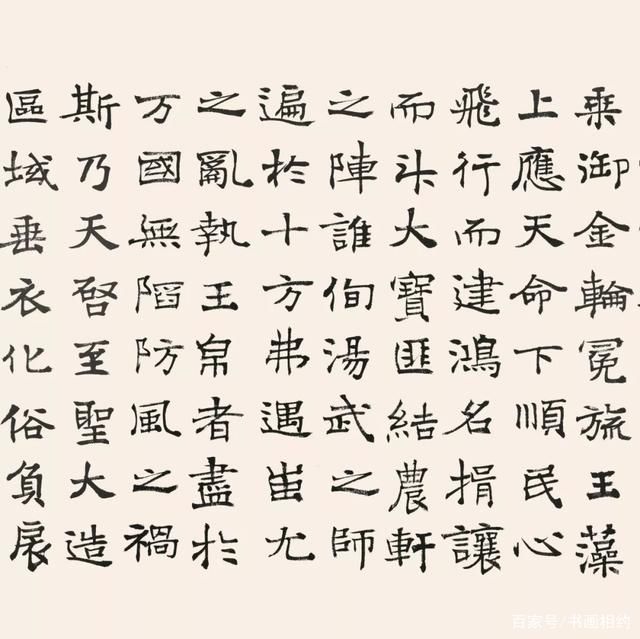 乗御金輪冕旒王藻
上應天命下順民心
飛行而建鴻名揖讓
而升大寶匪結農軒
之陣誰侚湯武之師
遍於十方弗遇蚩尤
之亂執王帛者盡於
万國無陷防風之禍
斯乃天啓至聖大造
區域垂衣化俗負扆
百家号/书画相约